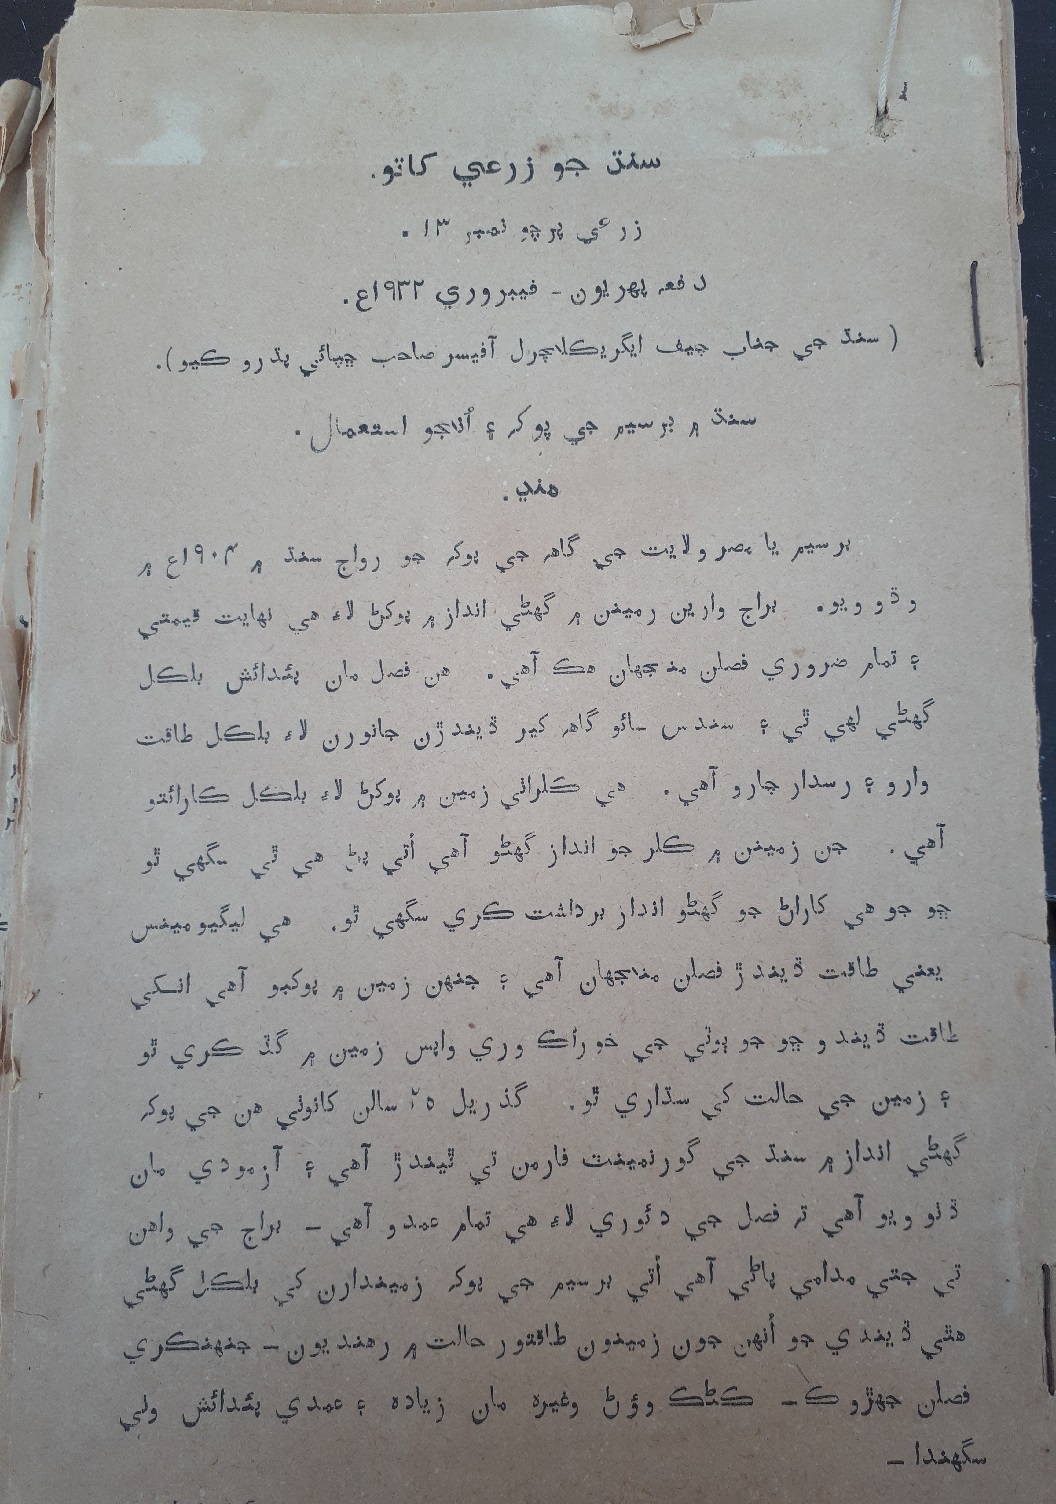 سنڌ جو زرعي کاتو.
زرعي پرچو نمبر ۱۳ .
دفعہ پھریون - فیبروري ۱۹۳۲ع.
( سنڌ جي جناب چیف ایگریڪلاچرل آفیسر صاحب ڇپائي پڌرو ڪیو ).
سنڌ ۾ برسیم جي پوکہ ۽ اُنهجو استعمال .
منڍ.
برسیم یا مصر ولایت جي گاهہ جي پوکہ جو رواج سنڌ ۾ ۱۹۰۴ع ۾
وڌو ویو. براج وارین زمینن ۾ گهڻي انداز ۾ پوکڻ لاءِ هي نهایت قیمتي
۽ تمام ضروري فصلن منجهان هڪ آهي. هن فصل مان پئدائش بلڪل
گهڻي لهي ٿي ۽ سندس سائو گاهہ کیر ڏیندڙن جانورن لاءِ بلڪل طاقت
وارو ۽ رسدار چارو آهي. هي ڪلراٺي زمین ۾ پوکڻ لاءِ بلڪل ڪارائتو
آهي. جن زمینن ۾ ڪلر جو انداز گهڻو آهي اُتي پڻ هي ٿي سگهي ٿو
ڇو جو هي کاراڻ جو گهڻو انداز برداشت ڪري سگهي ٿو. هي لیگیومینس
یعني طاقت ڏیندڙ فصلن منجهان آهي ۽ جنهن زمین ۾ پوکبو آهي انکي
طاقت ڏیندو ڇو جو ٻوٽي جي خوراڪ وري واپس زمین ۾ گڏ ڪري ٿو
۽ زمین جي حالت کي سڌاري ٿو. گذریل ۲۵ سالن کانوٺي هن جي پوکہ
گهڻي انداز ۾ سنڌ جي گورنمینٽ فارمن تي ٿیندڙ آهي ۽ آزمودي مان
ڏٺو ویو آهي تہ فصل جي دئوري لاءِ هي تمام عمدو آهي - براج جي واهن
تي جتي مدامي پاڻي آهي اُتي برسیم جي پوکہ زمیندارن کي بلڪل گهڻي
هٿي ڏیندي جو اُنهن جون زمینون طاقتور حالت ۾ رهندیون - جنهنڪري
فصلن جهڙوڪ - ڪڻڪ وؤڻ وغیره مان زیاده ۽ عمدي پئدائش وٺي
سگهندا -